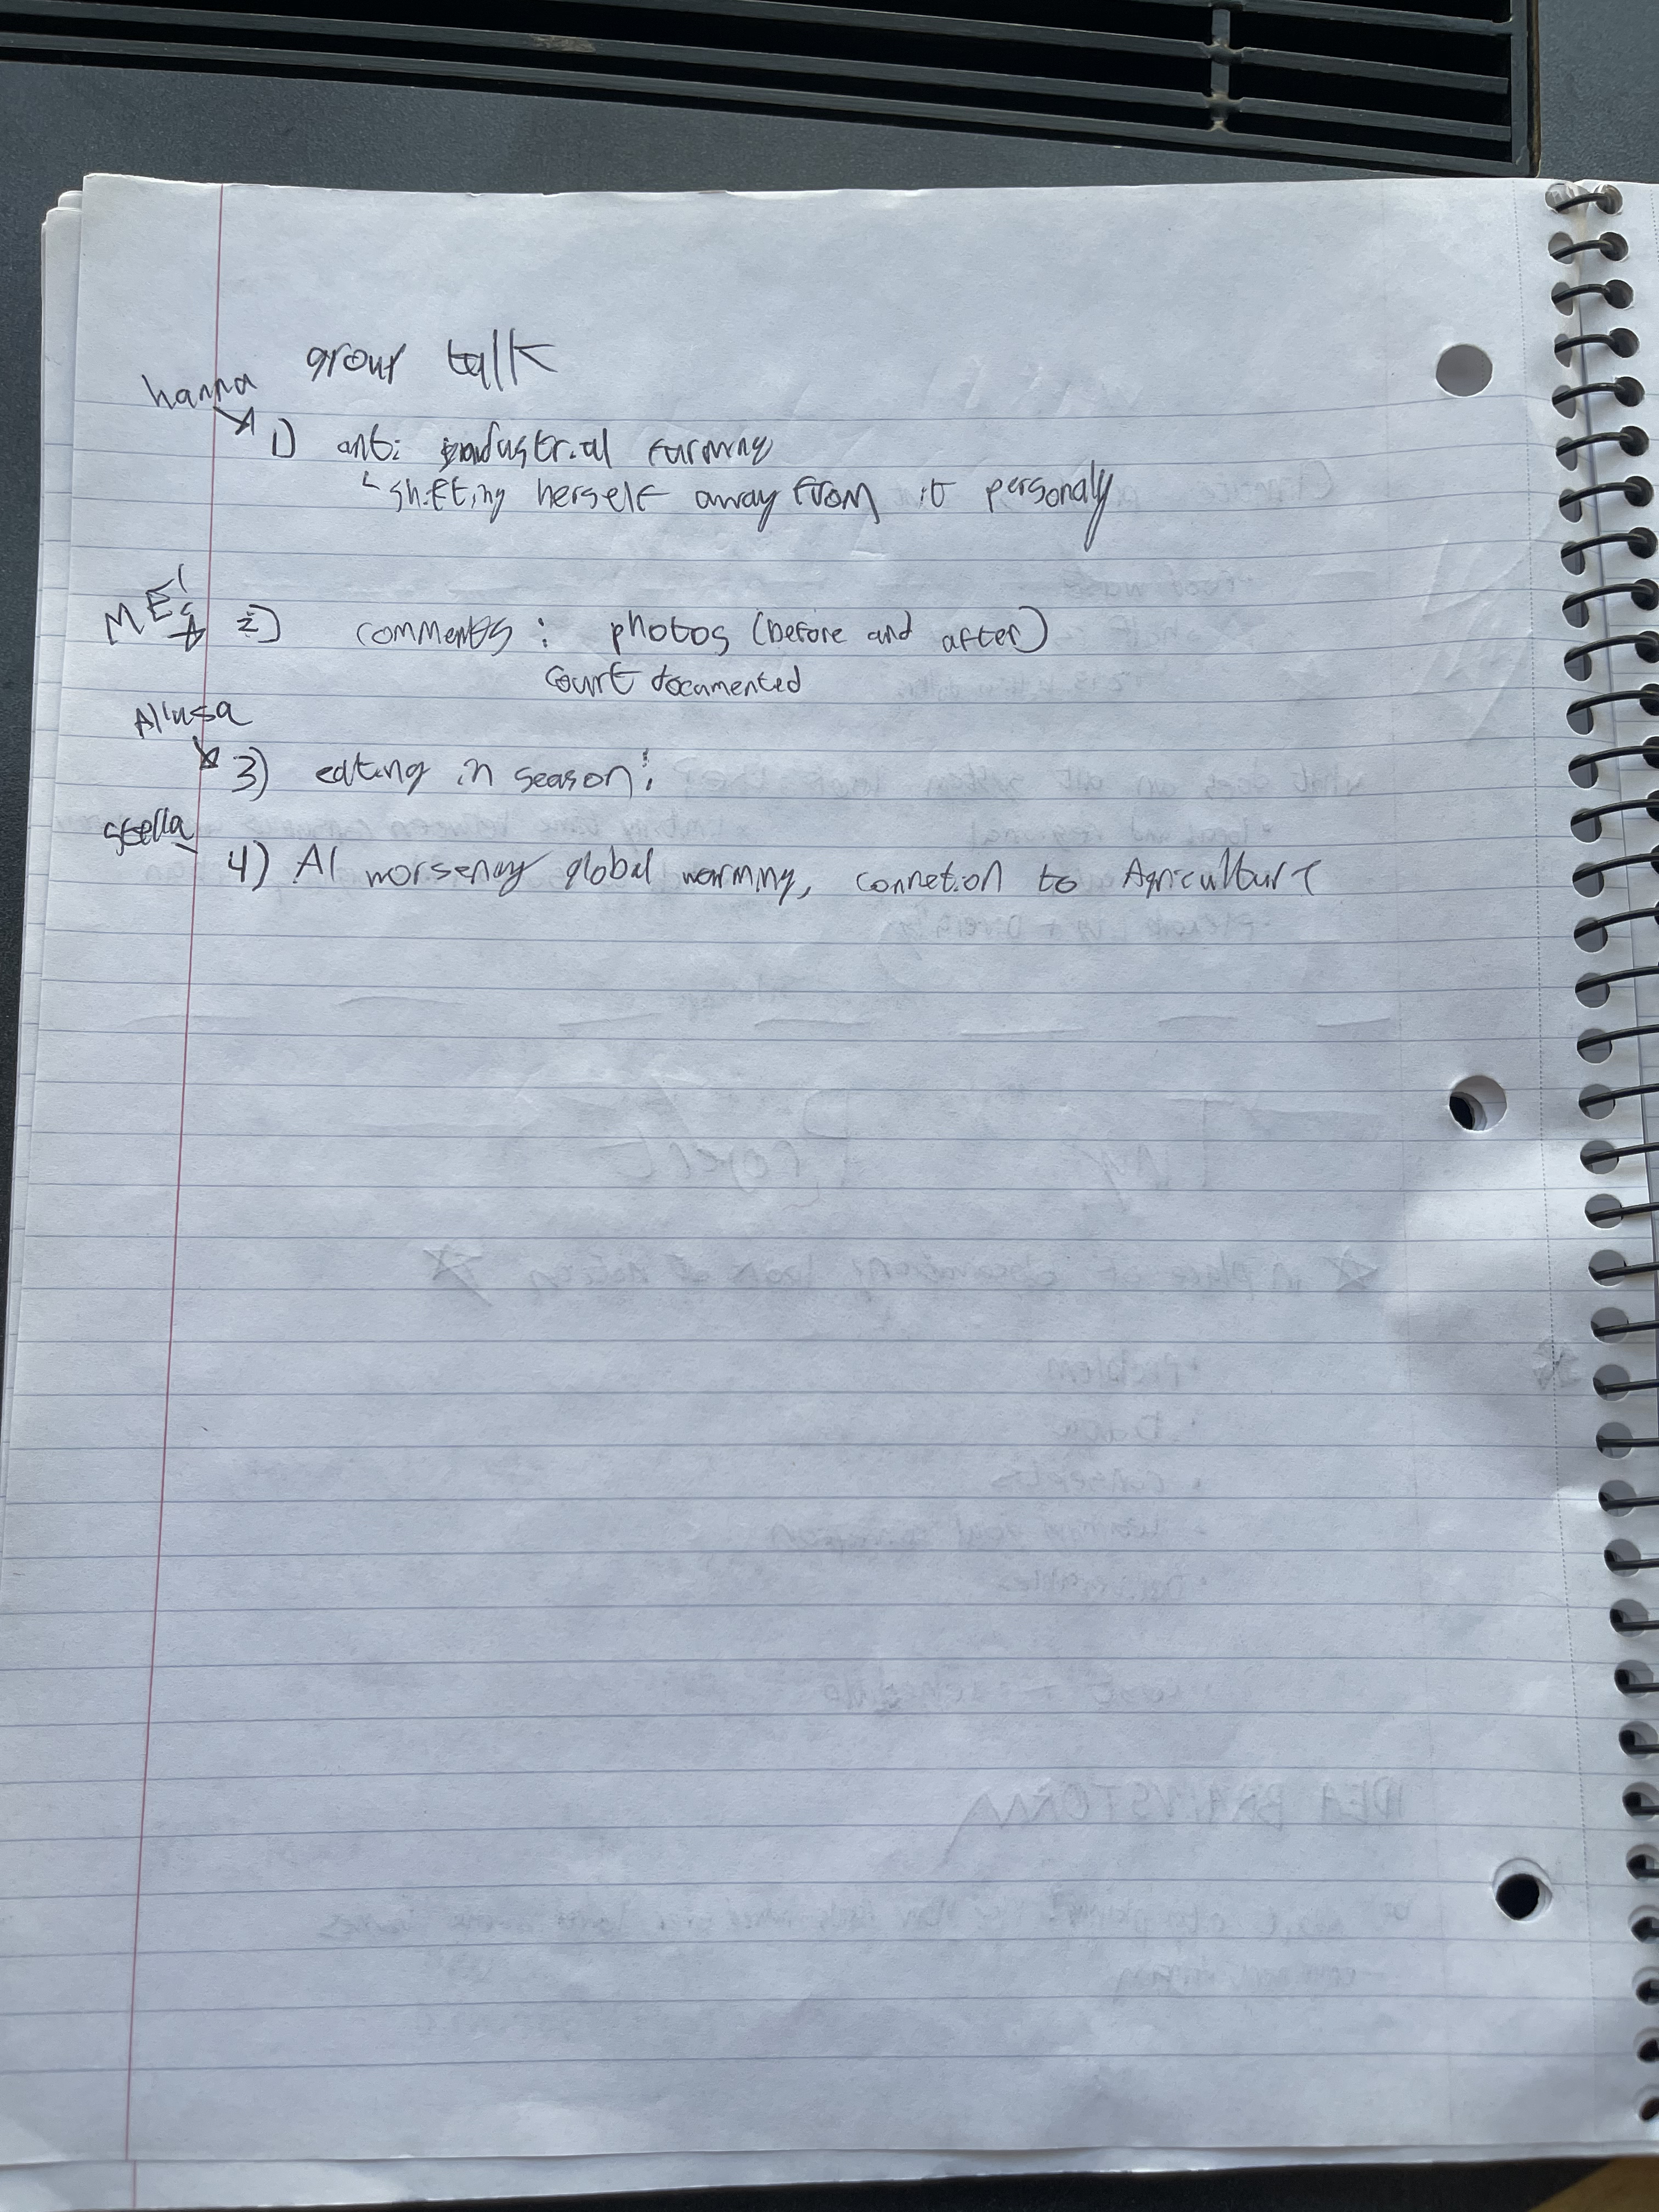 group talk
hanna
1) anti industrial farming
shifting herself away from it personaly
ME!
2) comments : photos (before and after)
court documented
3) eating in season :
stella
4) AI worsening global warming, connetion to Agriculture